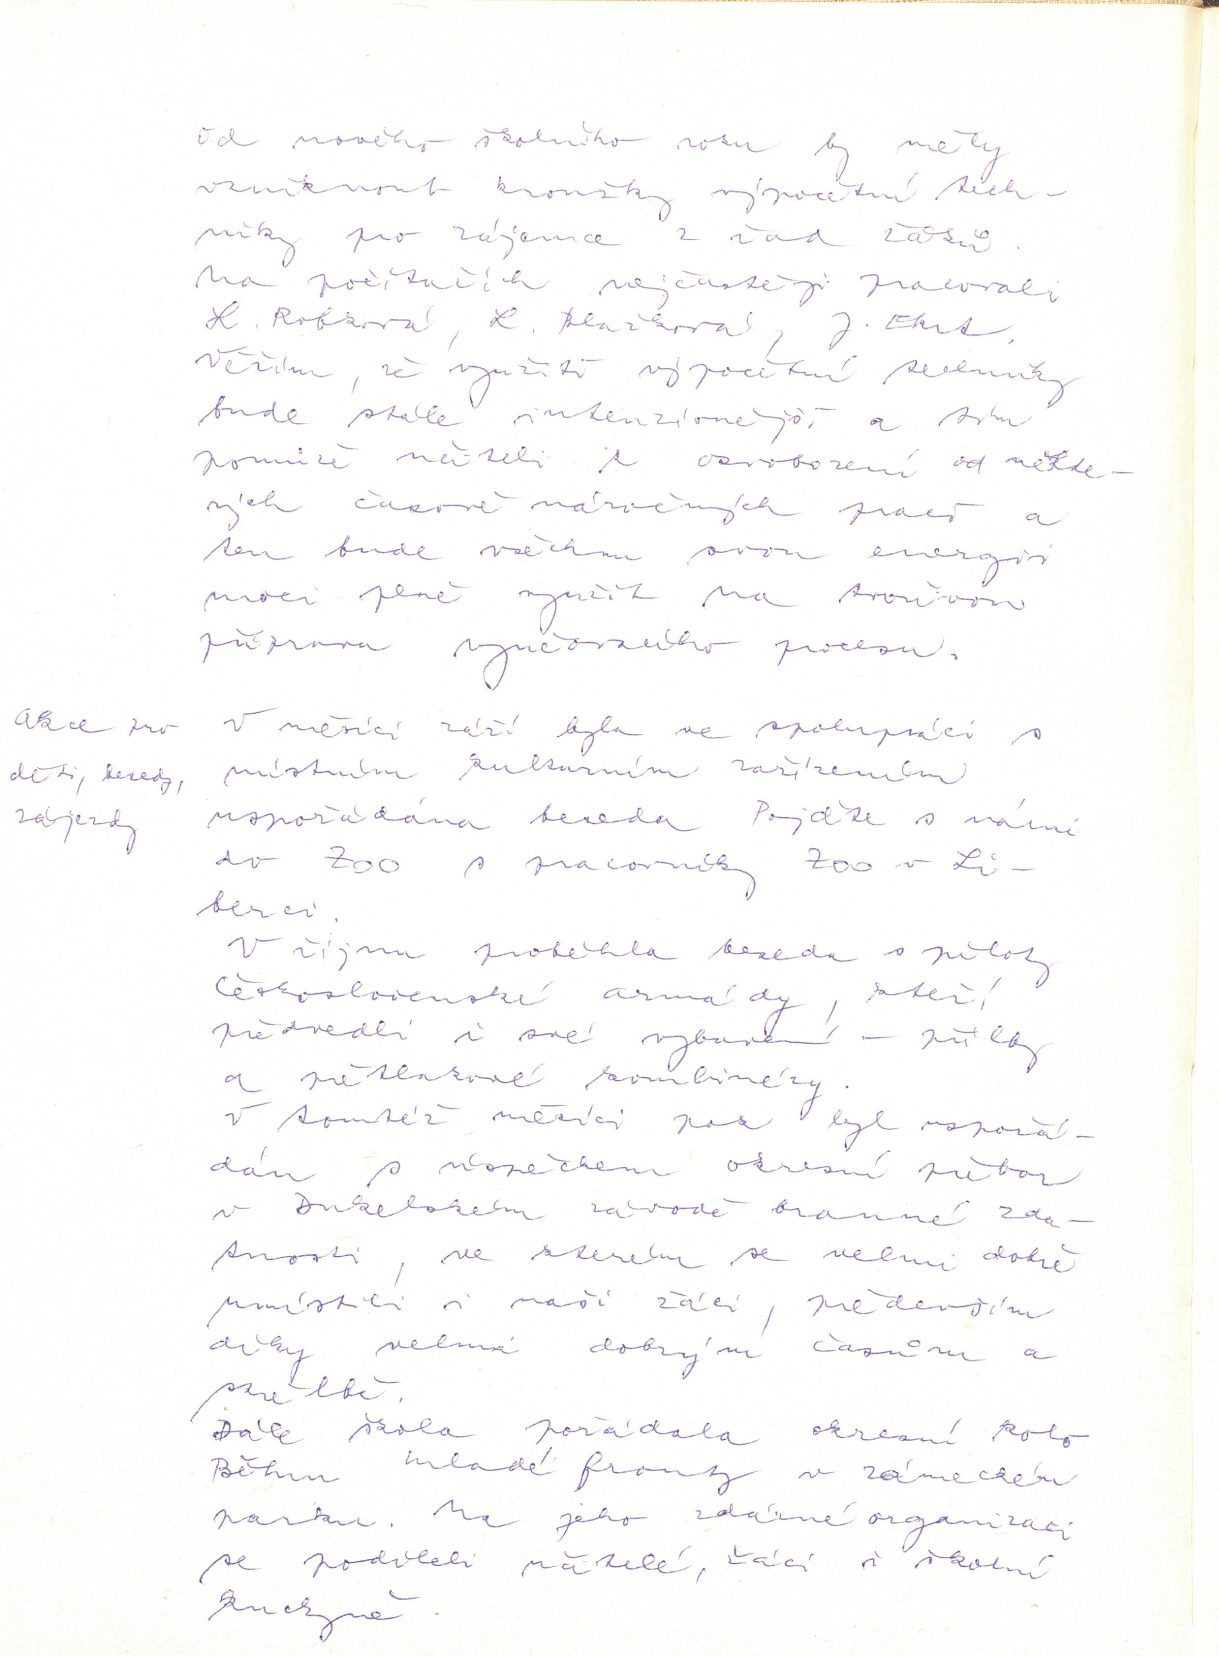 Od nového školního roku by měly
vzniknout kroužky výpočetní tech-
niky pro zájemce z řad žáků.
Na počítačích nejčastěji pracovali
H. Robková, H. Blažková, J. Ekrt.
Věřím, že využití výpočetní techniky
bude stále intenzivnější a tím
pomůže učiteli k osvobození od někte-
rých časově náročných prací a
ten bude všechnu svou energii
moci plně využít na tvořivou
přípravu vyučovacího procesu.
Akce pro
děti, besedy,
zájezdy
V měsíci září byla ve spolupráci s
místním kulturním zařízením
uspořádána beseda Pojďte s námi
do ZOO s pracovníky ZOO v Li-
berci.
V říjnu proběhla beseda s piloty
Československé armády, kteří
předvedli i své vybavení - přilby
a přetlakové kombinézy.
V tomtéž měsíci pak byl uspořá-
dán s úspěchem okresní přebor
v Dukelském závodě branné zda-
tnosti, ve kterém se velmi dobře
umístili i naši žáci, především
díky velmi dobrým časům a
střelbě.
Dále škola pořádala okresní kolo
Běhu Mladé fronty v zámeckém
parku. Na jeho zdárné organizaci
se podíleli učitelé, žáci i školní
kuchyně.